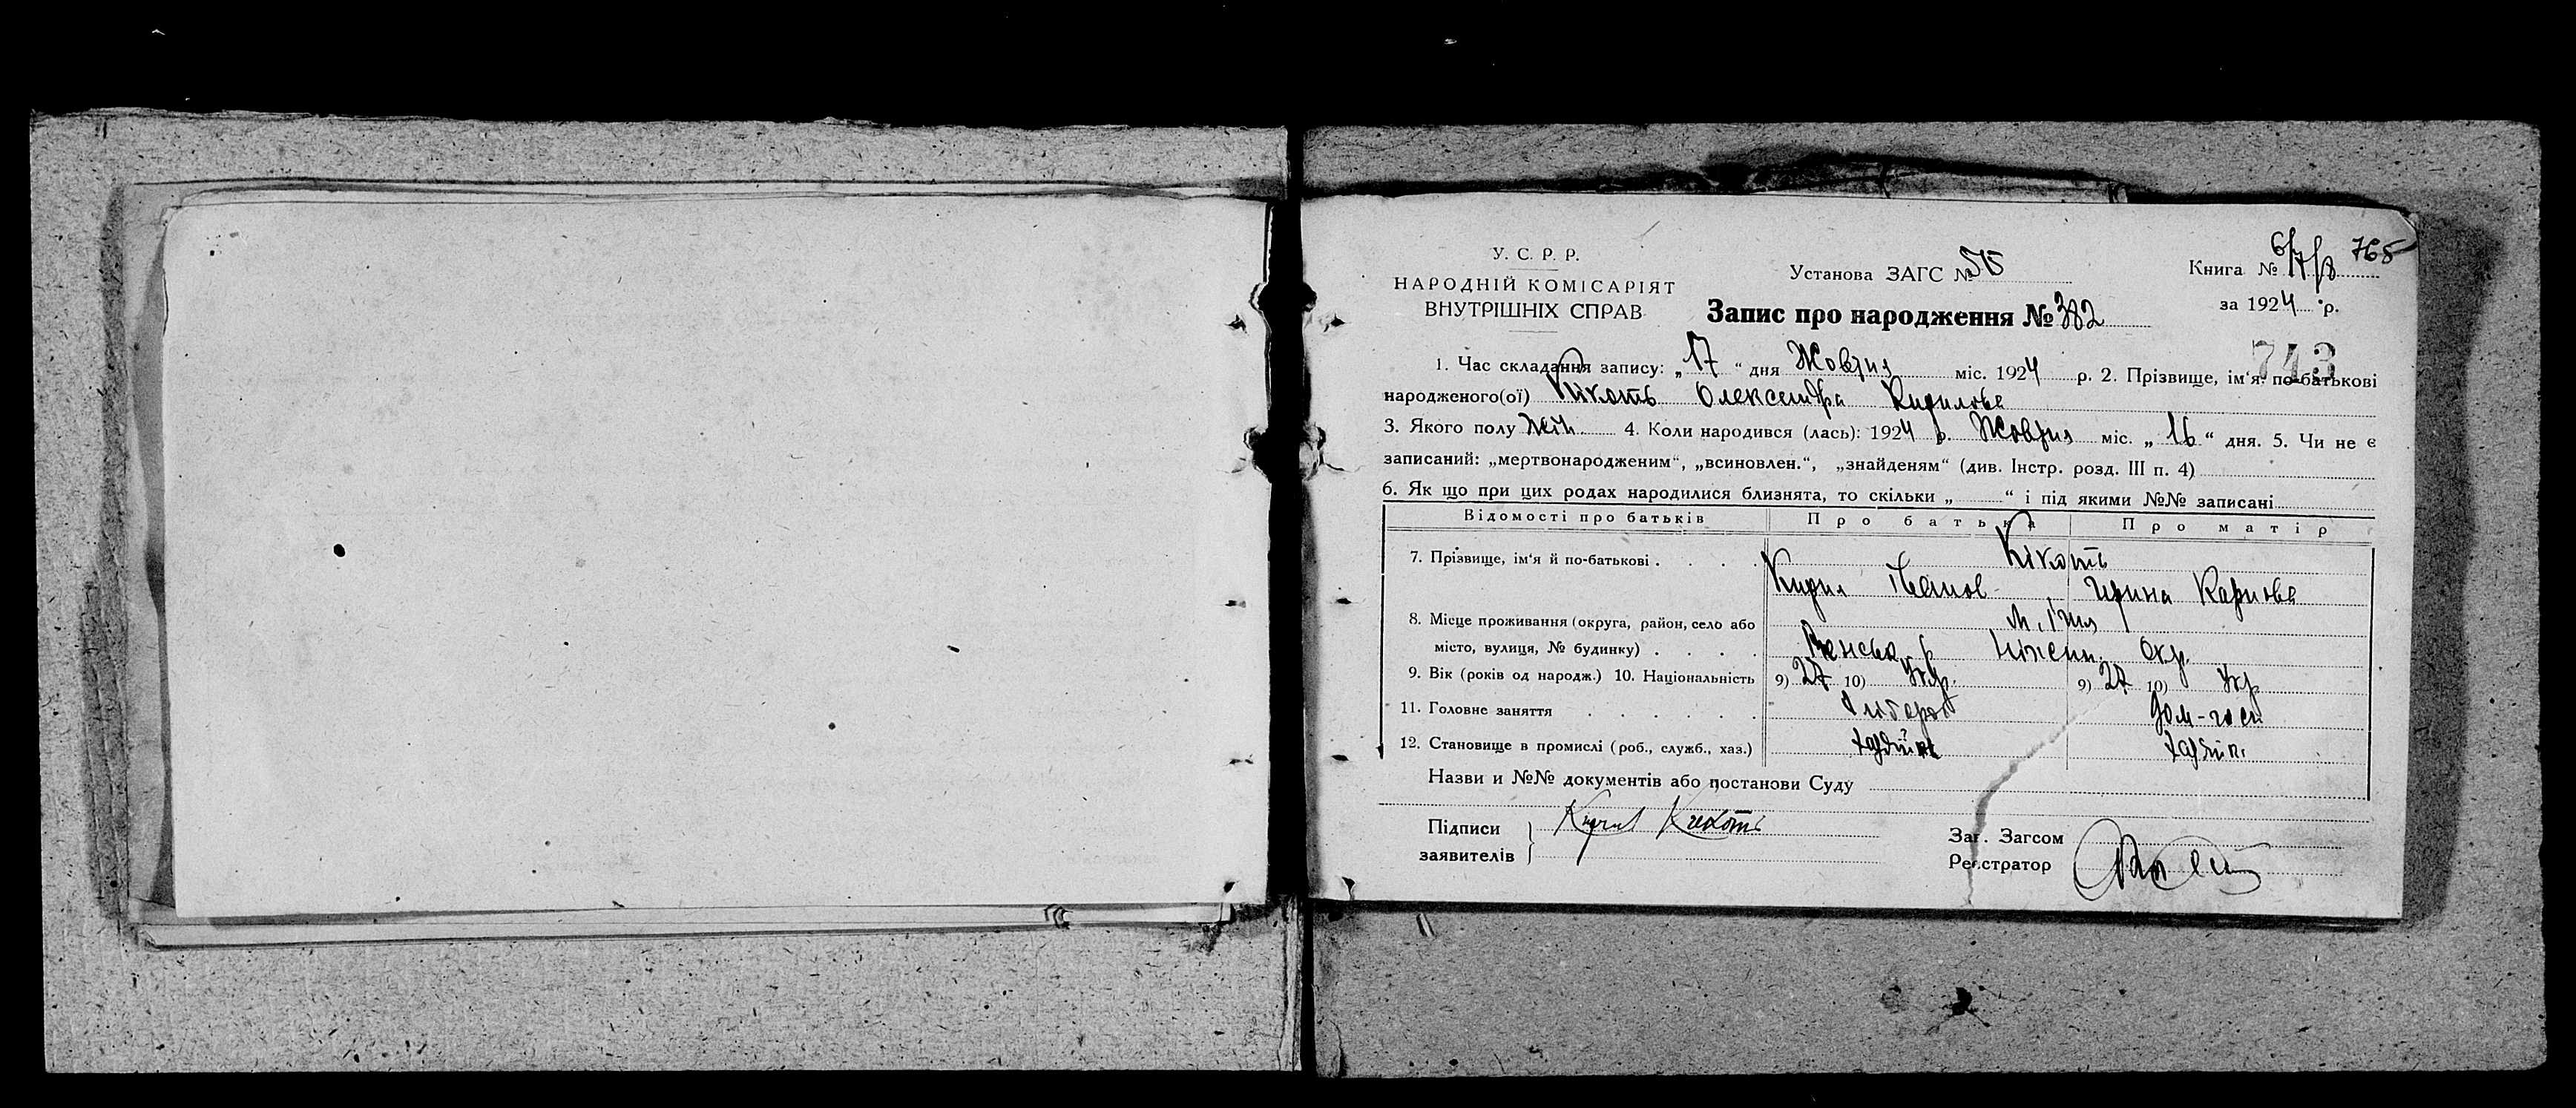 У. С. Р. Р.
НАРОДНІЙ КОМІСАРІЯТ
ВНУТРІШНІХ СПРАВ
Установа ЗАГС №
Книга № 768
за 1924 р.
Запис про народження № 382
743
1. Час складання запису: „17“ дня Жовтня міс. 1924 р. 2. Прізвище, ім‘я. по-батькові
народженого(ої) Кікоть Олександра Кирилова
3. Якого полу жін. 4. Коли народився (лась): 1924 р. Жовтня міс. „16“ дня. 5. Чи не є
записаний: „мертвонародженим“, „всиновлен.“, „знайденям“ (див. Інстр. розд. III п. 4)
6. Як що при цих родах народилися близнята, то скільки „ “ і під якими №№ записані
Відомості про батьків Про батька Про матір
7. Прізвище, ім‘я й по-батькові . . . . Кікоть
Кирил Іванов Ирина Карпова
8. Місце проживання (округа, район, село або м. Ічня
місто, вулиця, № будинку) . . . . Ніжин. Окр.
9. Вік (років од народж.) 10. Національність 9) 27 10) Укр. 9) 27 10) Укр
11. Головне заняття . . . . . . Хлібороб Дом-госп
12. Становище в промислі (роб., служб., хаз.)
Назви и №№ документів або постанови Суду
Підписи Кирил Кикоть
заявителів
Заг. Загсом
Реєстратор